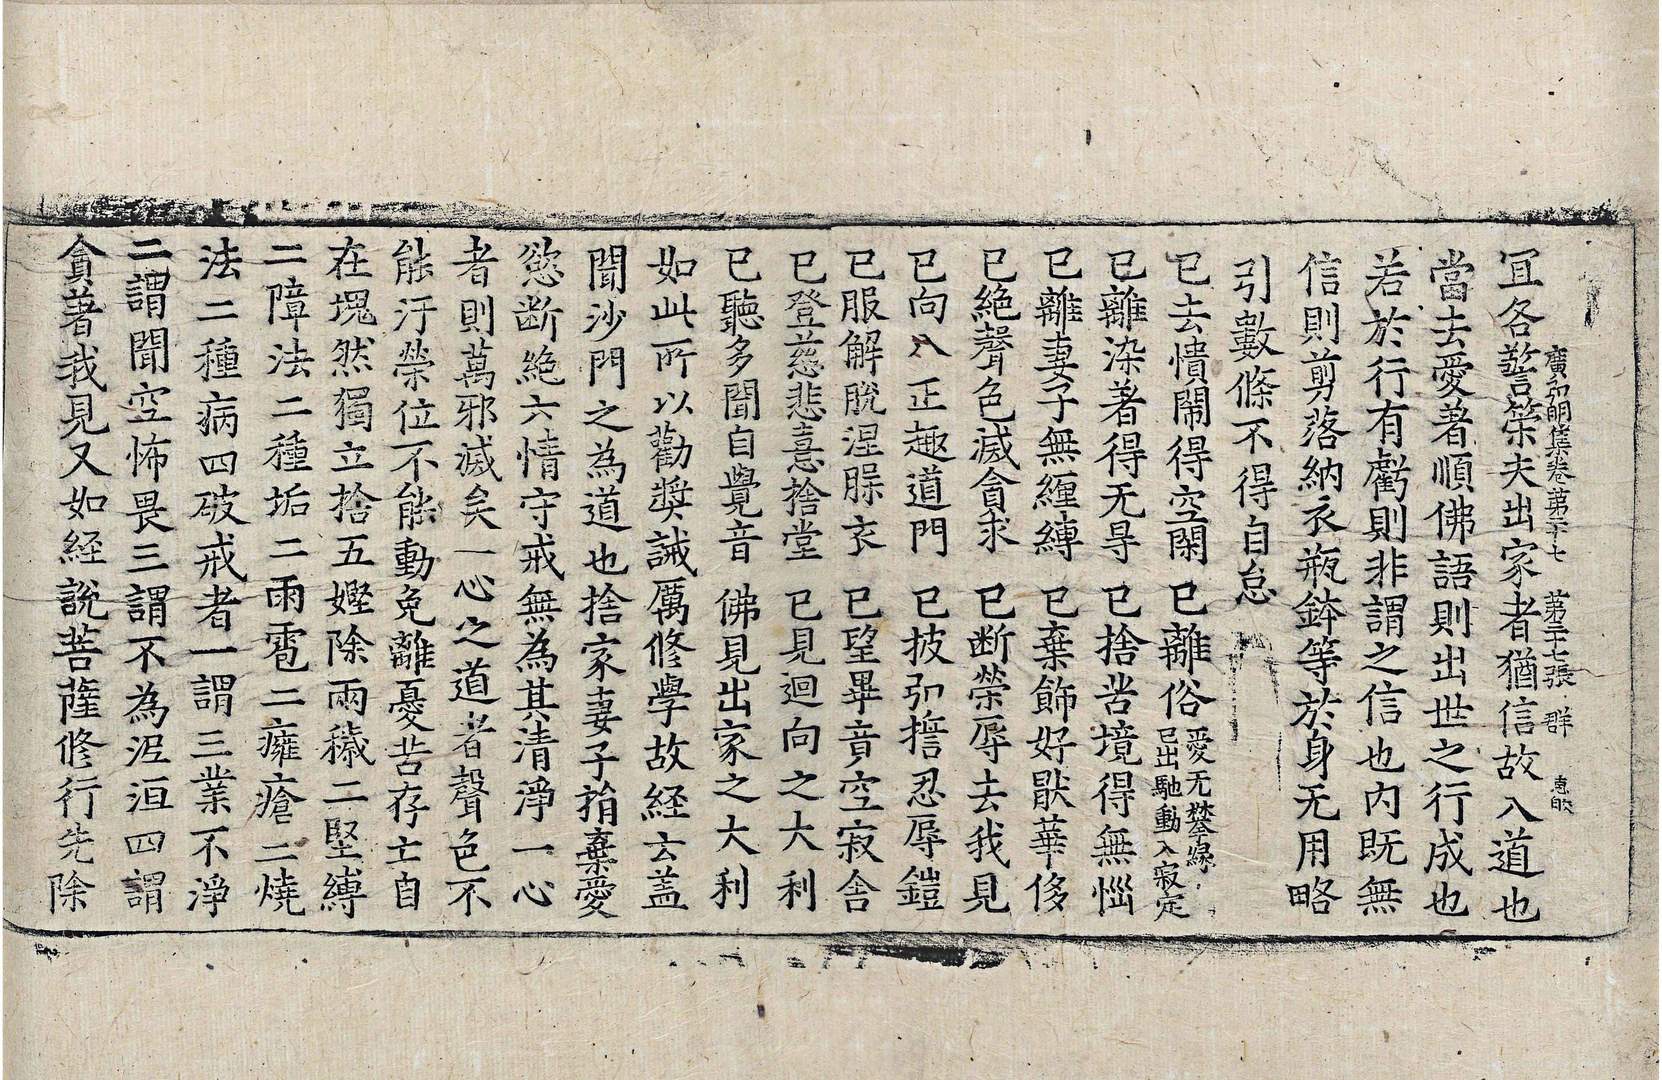 廣弘明集卷第二十七 第二十七張 群
冝各警䇿夫出家者猶信故入道也
當去愛著順佛語則出世之行成也
若於行有虧則非謂之信也内既無
信則剪落納衣瓶鉢等於身无用略
引數條不得自怠
已去憒閙得空閑 已離俗愛无攀緣已出馳動入寂定
已離染著得无㝵 已捨苦境得無惱
已離妻子無纏縛 已棄飾好猒華侈
已絶聲色滅貪求 已断榮辱去我見
已向八正趣道門 已披弘誓忍辱鎧
已服解脫涅槃衣 已望畢竟空寂舍
已登慈悲喜捨堂 已見迴向之大利
已聽多聞自覺音 佛見出家之大利
如此所以勸奬誡厲修學故経云盖
聞沙門之為道也捨家妻子捐棄愛
慾断絶六情守戒無為其清淨一心
者則萬邪滅矣一心之道者聲色不
能汙榮位不能動免離憂苦存亡自
在塊然獨立捨五㜸除兩穢二堅縛
二障法二種垢二雨雹二癰瘡二燒
法二種病四破戒者一謂三業不淨
二謂聞空怖畏三謂不為涅洹四謂
貪著我見又如経說菩薩修行先除